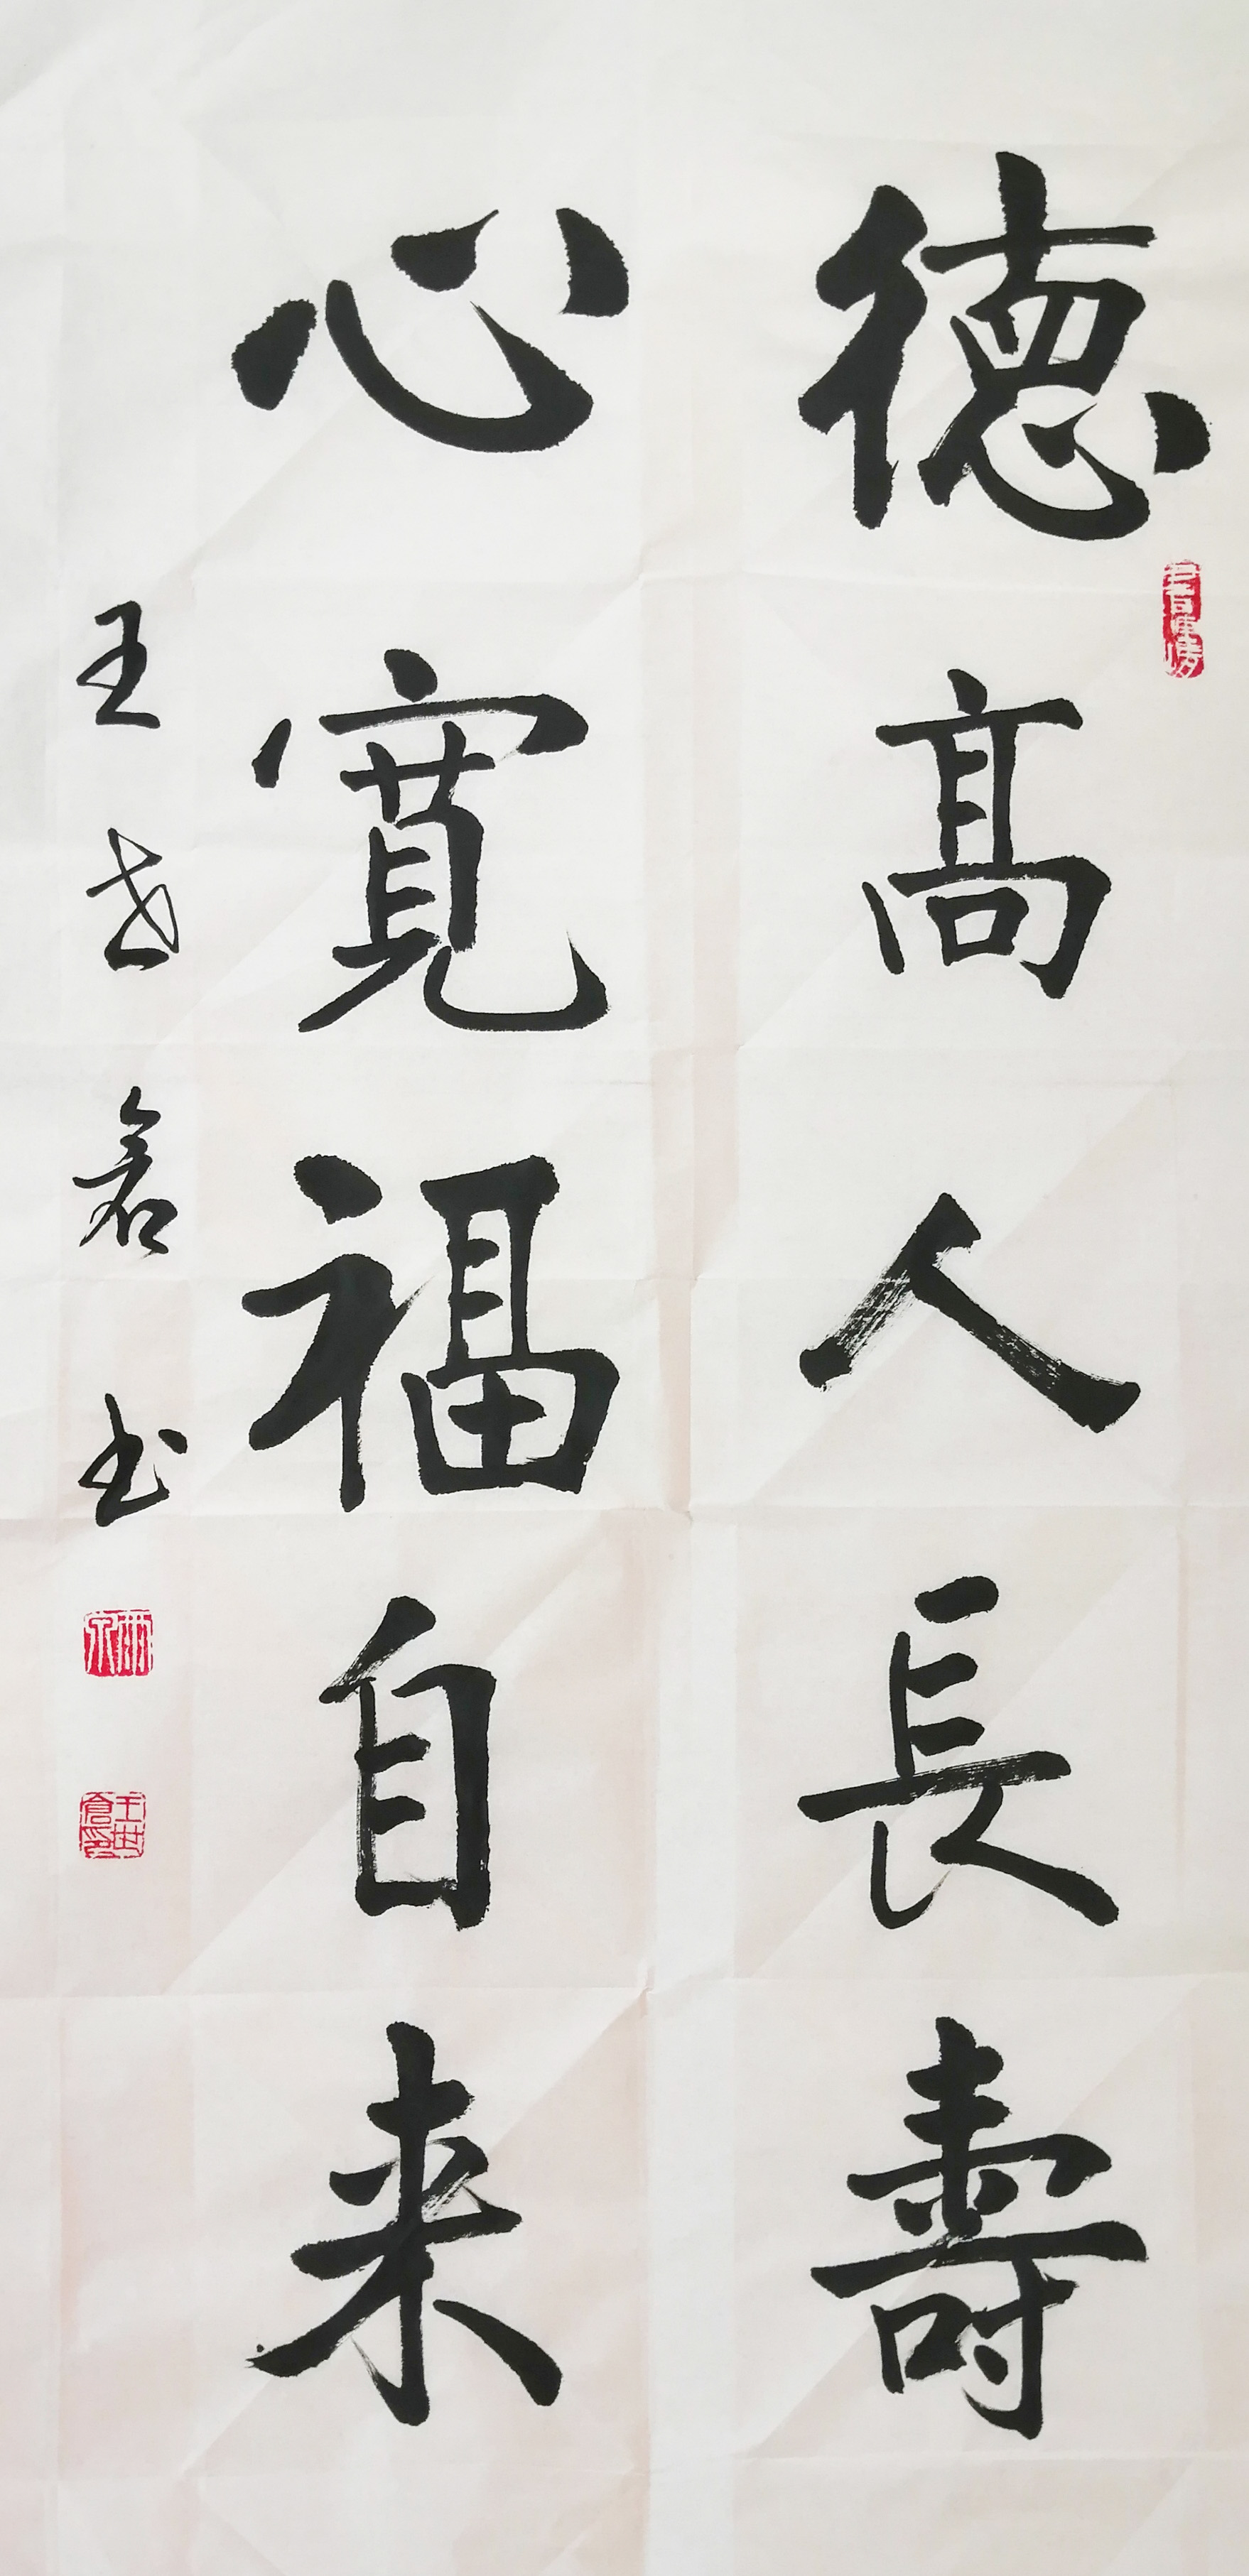 德髙人長壽
心寬福自来
王世倉书
王世倉印